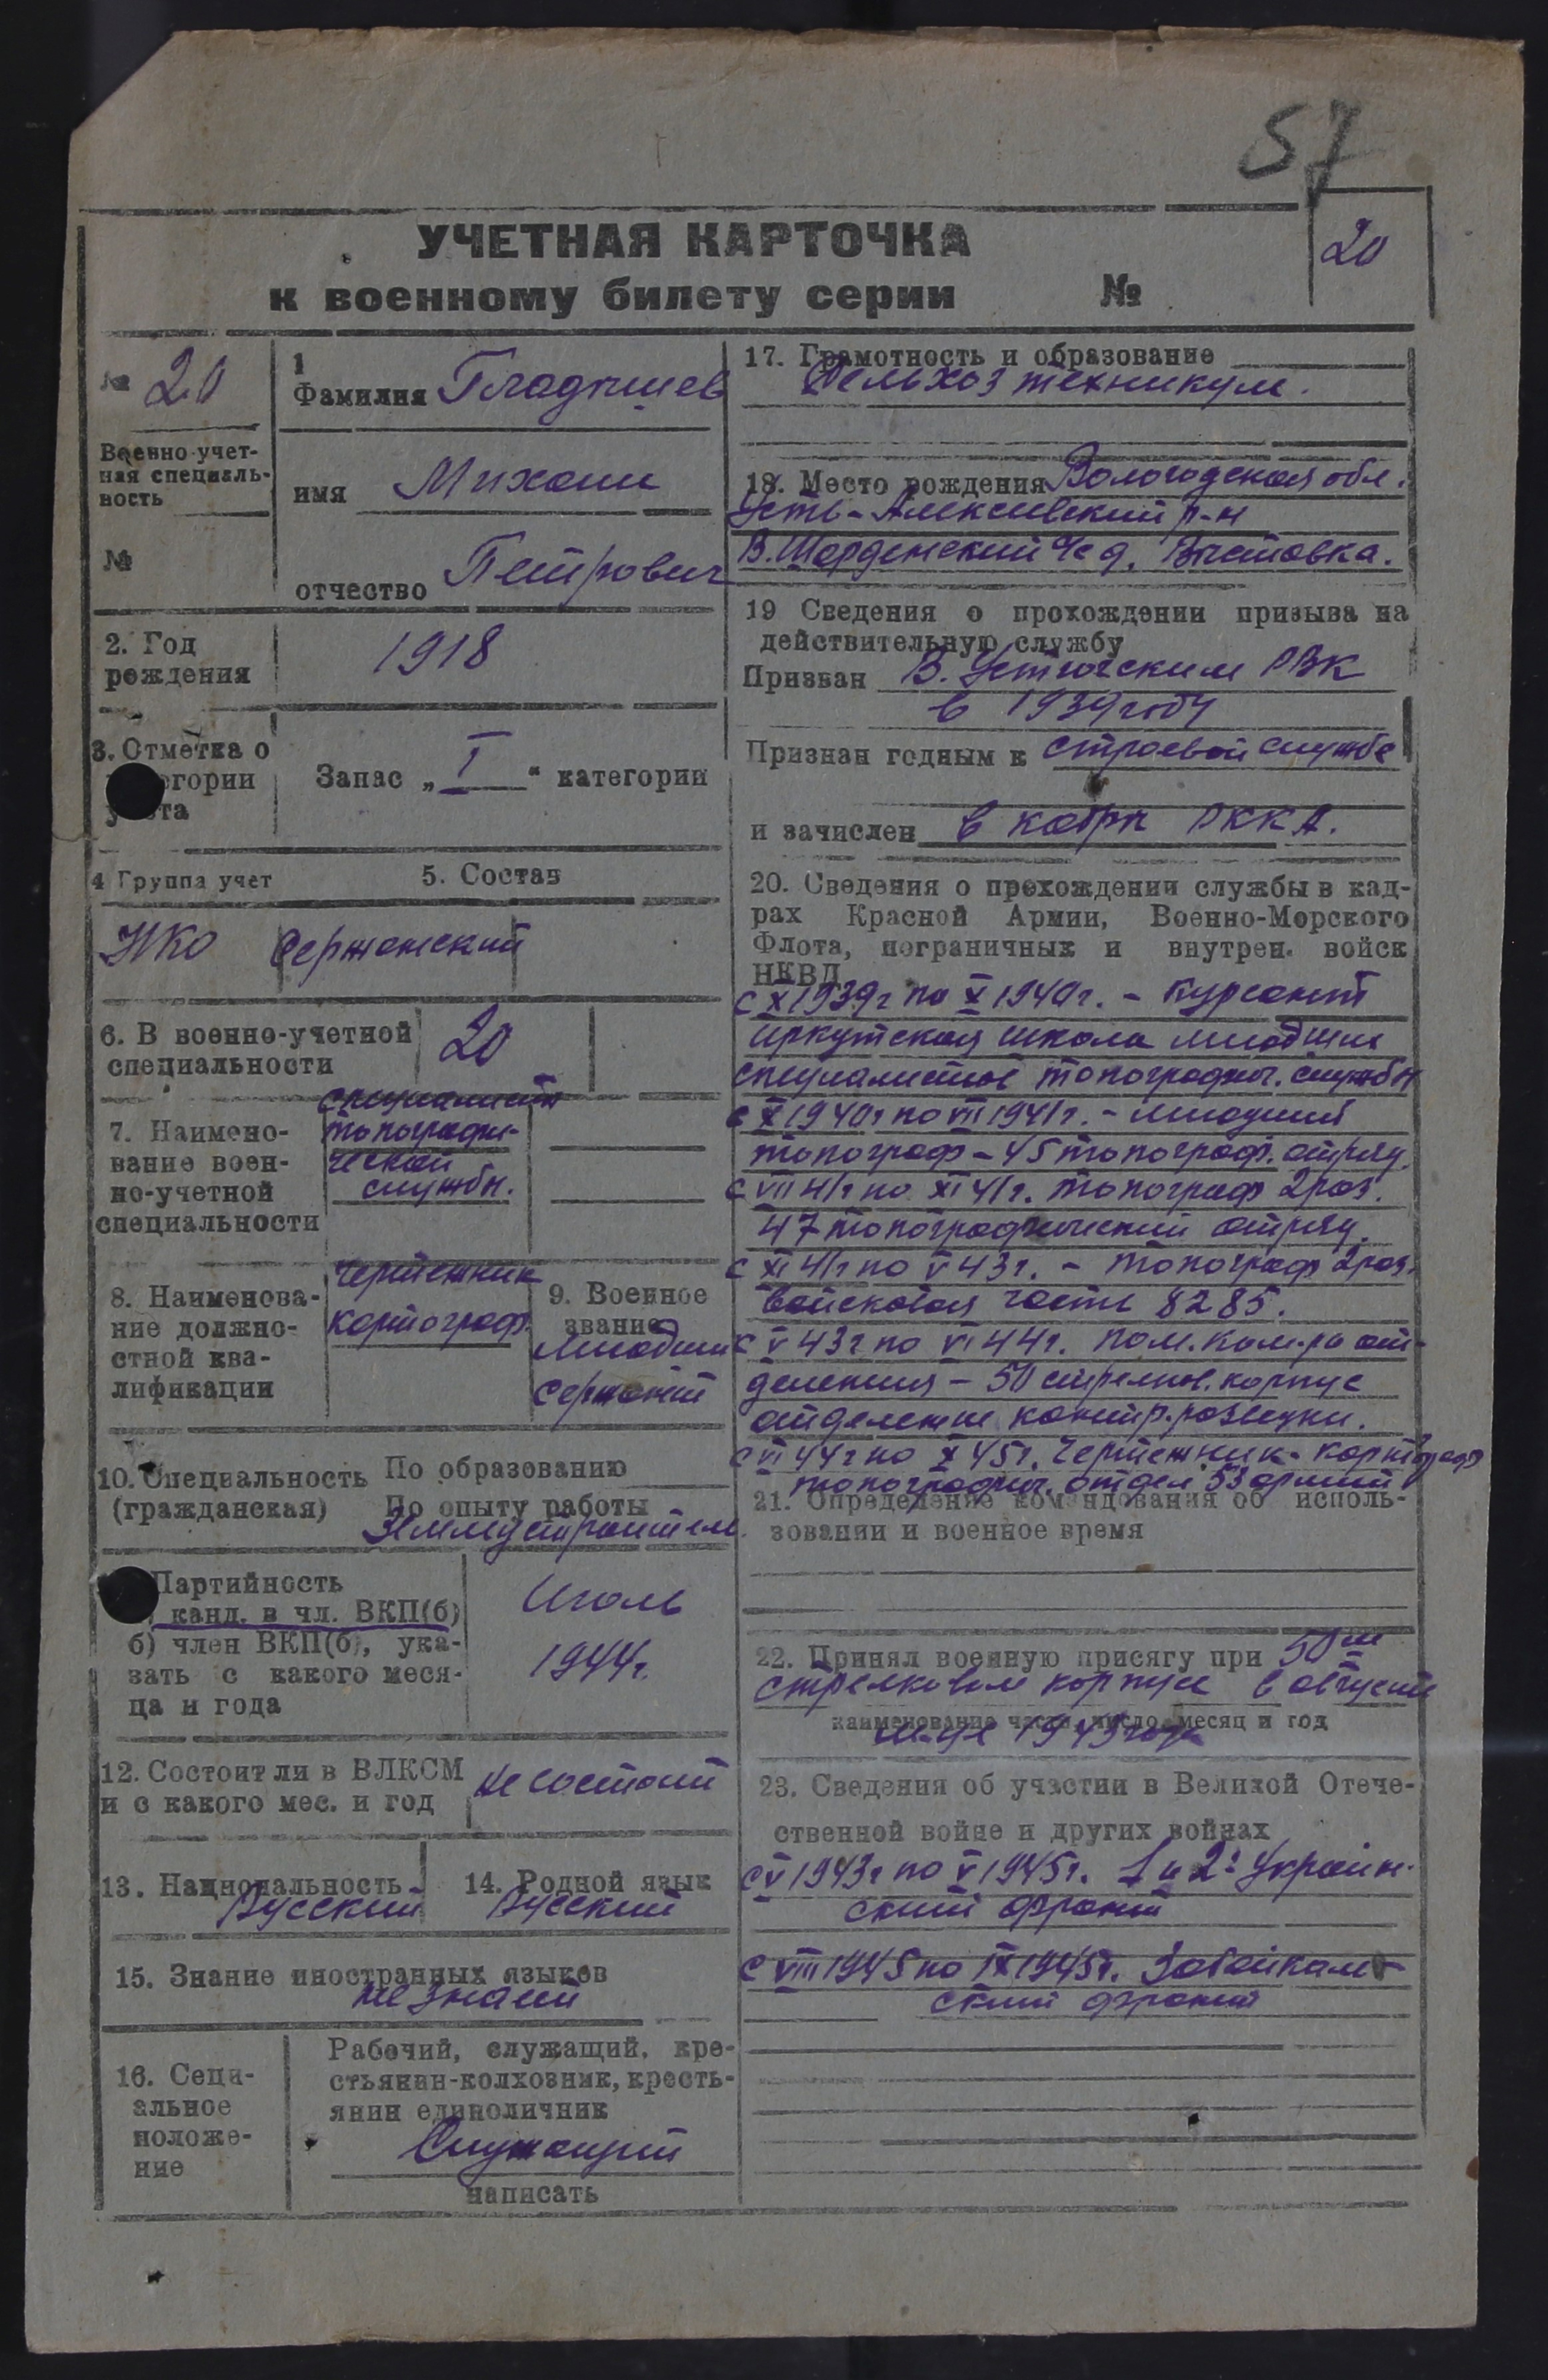 57
20
УЧЕТНАЯ КАРТОЧКА
к военному билету серии №
№ 20
Военно-учет-
ная специаль-
ность
№
1
Фамилия Гладышев
имя Михаил
отчество Петрович
2. Год
рождения
1918
3. Отметка о
егории
у та
Запас „ I “ категории
4 Группа учет
5. Состав
НКО Сержанский
6. В военно-учетной
специальности
20
7. Наимено-
вание воен-
но-учетной
специальности
специалист
топографи-
ческой
службы.
8. Наименова-
ние должно-
стной ква-
лификации
Чертежник
картограф.
9. Военное
звание
Младши
сержант
10. Специальность
(гражданская)
По образованию
По опыту работы
Землеустроитель.
Партийность
канд. в чл. ВКП(б)
б) член ВКП(б), ука-
зать с какого меся-
ца и года
Июль
1944г.
12. Состоит ли в ВЛКСМ
и с какого мес. и год
не состоит
13. Национальность
Русский
14. Родной язык
Русский
15. Знание иностранных языков
не знает
16. Соци-
альное
положе-
ние
Рабочий, служащий, кре-
стьянин-колхозник, кресть-
янин единоличник
Служащий
написать
17. Грамотность и образование
Сельхоз техникум.
18. Место рождения Вологодская обл.
Усть-Алексеевский р-н
В. Шарденский с/с д. Выставка.
19 Сведения о прохождении призыва на
действительную службу
Призван В. Устюгским РВК
в 1939 году
Признан годным к строевой службе
и зачислен в кадры РККА.
20. Сведения о прохождении службы в кад-
рах Красной Армии, Военно-Морского
Флота, пограничных и внутрен. войск
НКВД
с X 1939г по X 1940г. - Курсант
иркутская школа младших
специалистов топографич. службы
с X 1940г по VII 1941г. - младший
топограф - 45 топограф. отряд.
с VII 41г по XI 41г. топограф 2 раз.
47 топографический отряд.
с XI 41г по V 43г. - топограф 2 раз.
войсковая часть 8285.
с V 43г по VI 44г. пом. ком-ра от-
деления - 50 стрелков. корпус
отделение контр. разведки.
с VI 44г по X 45г. Чертежник-картограф
топографич. отдел 53 армии
21. Определение командования об исполь-
зовании и военное время
22. Принял военную присягу при 50 м
стрелковом корпусе в августе
наименование части, число, месяц и год
м-це 1943 года
23. Сведения об участии в Великой Отече-
ственной войне и других войнах
с V 1943г по V 1945г. 1 и 2й Украин-
ский фронт
с VIII 1945 по IX 1945г. Забайкаль-
ский фронт